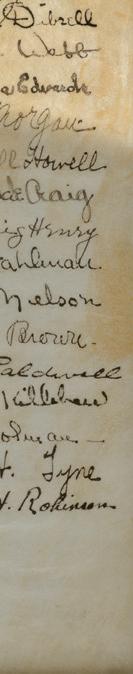 Dibrell
Webb
Edwards
Morgan
Howell
Craig
Henry
ahlman
Nelson
Brown.
Caldwell
Killebrew
olman
H. Tyne
H. Robinson